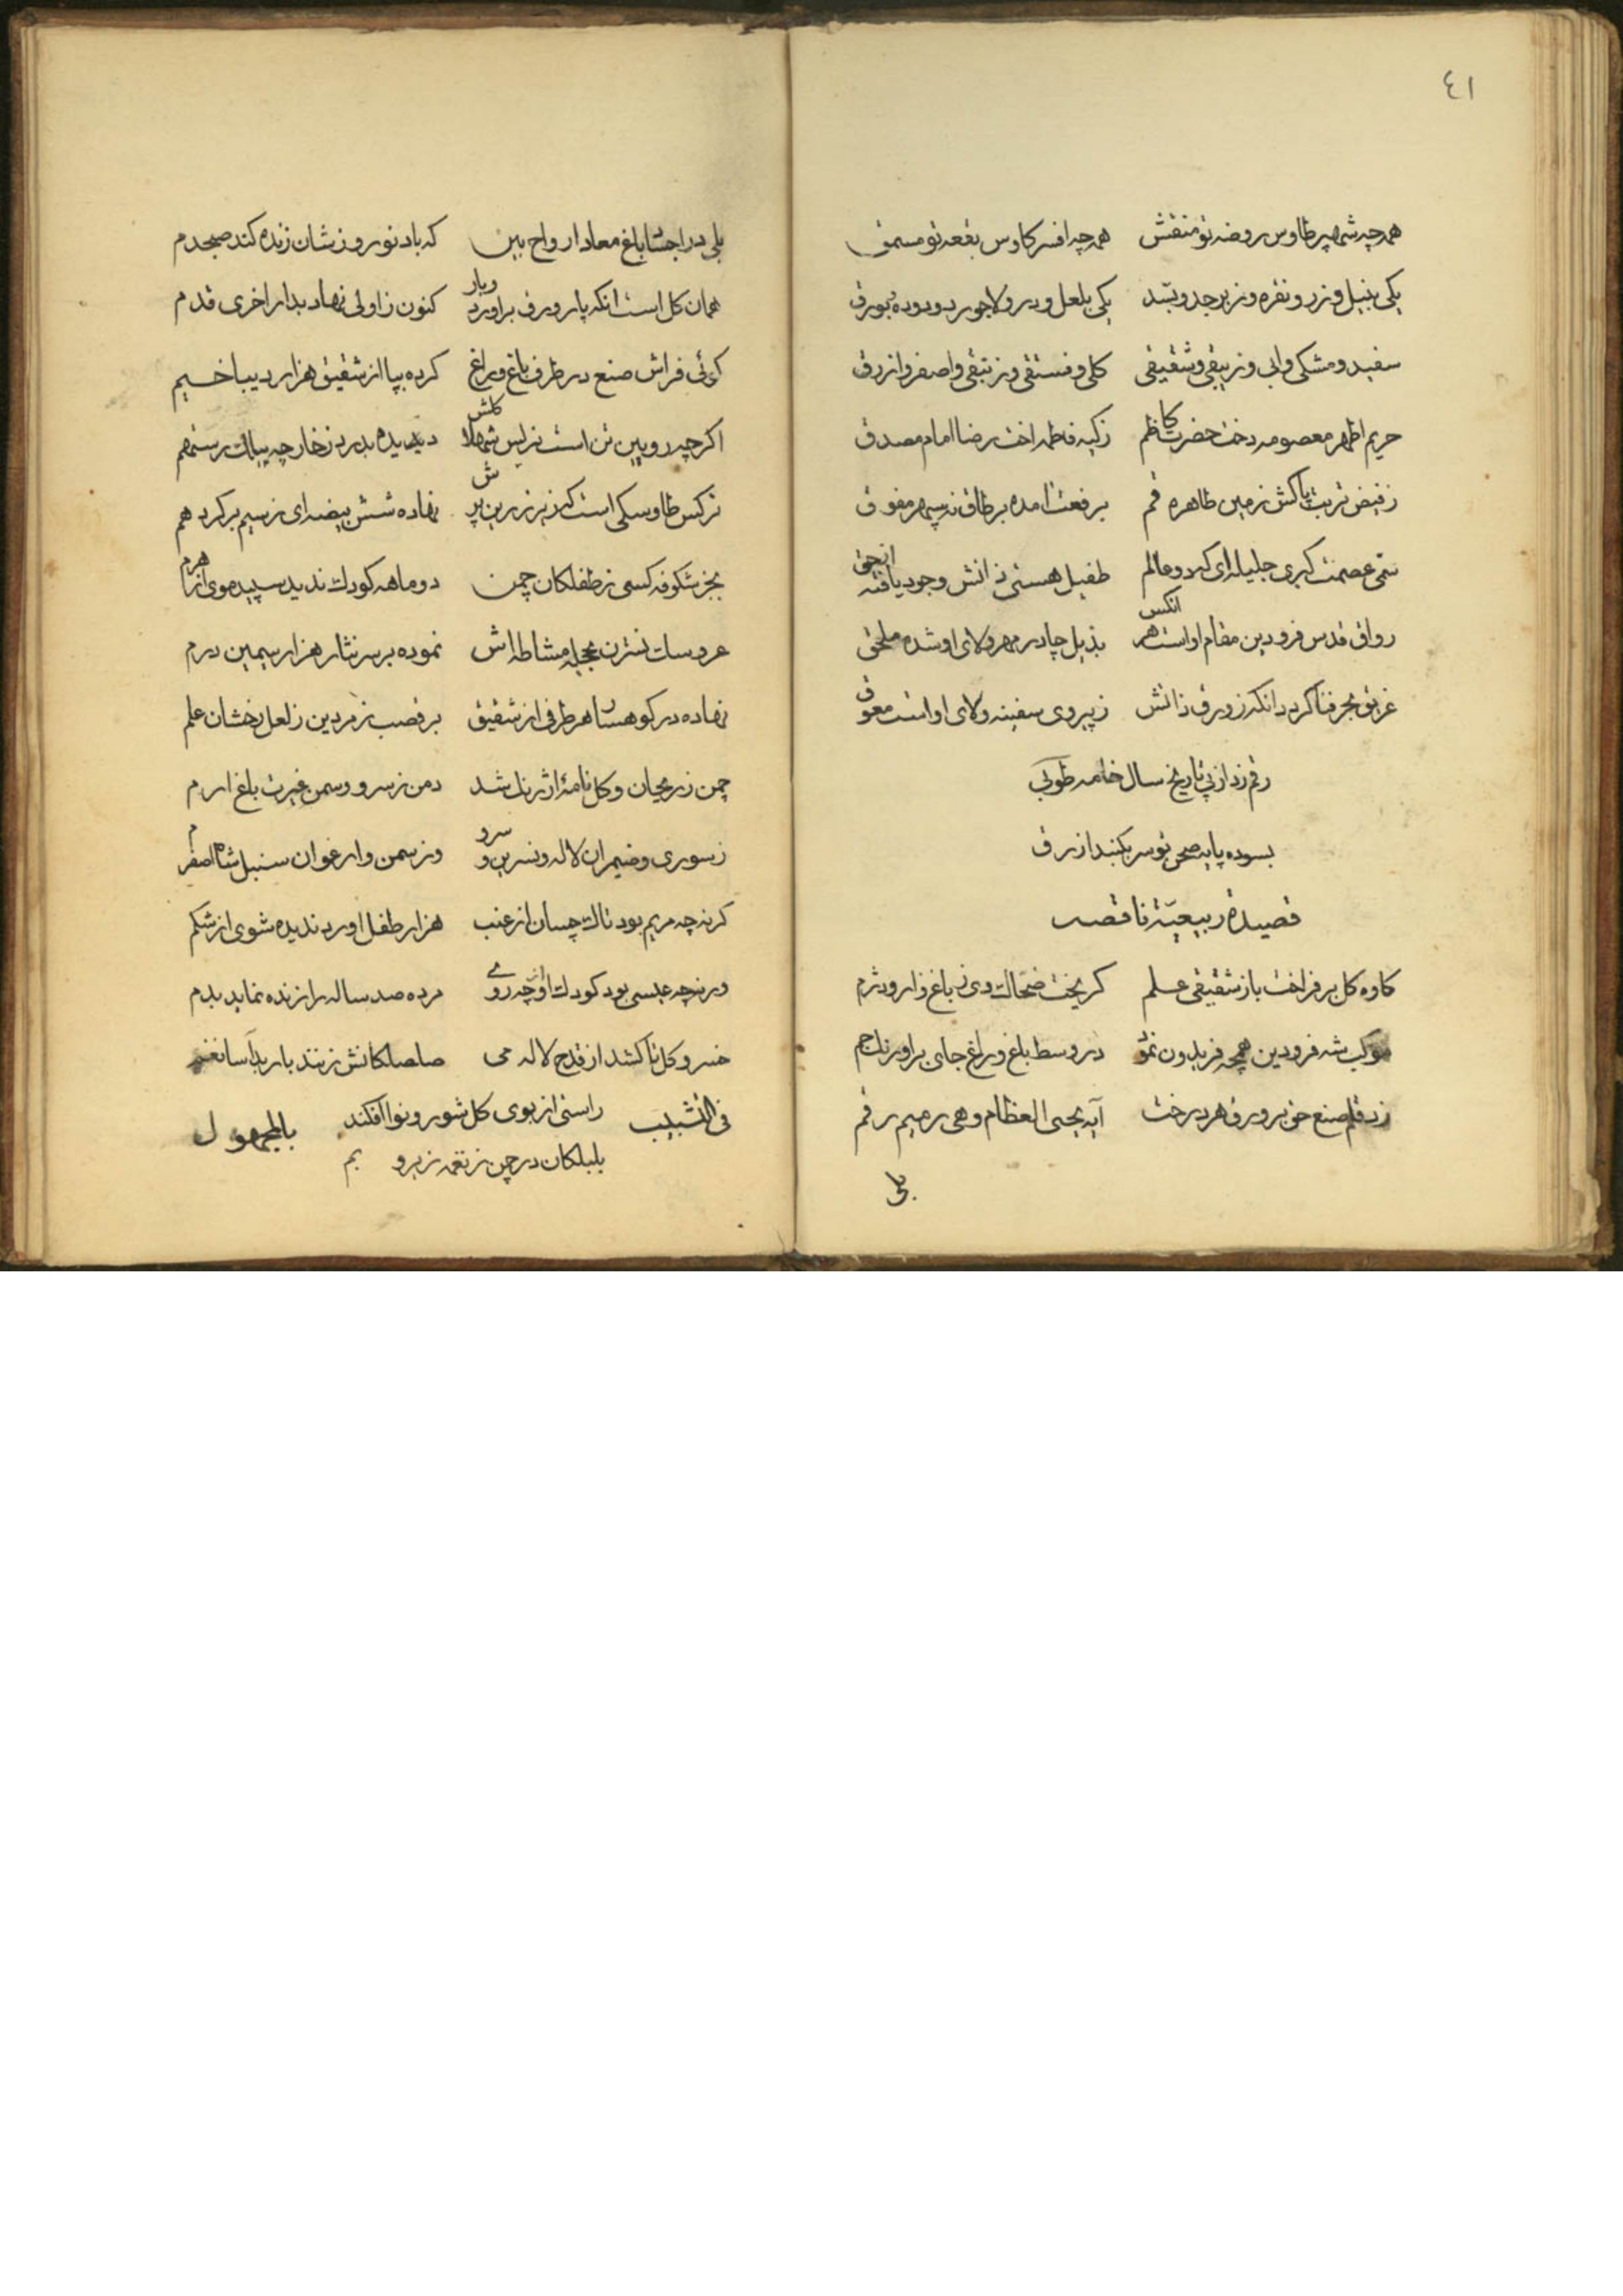 ٤١
همه چه شهپر طاوس روضه تو منقش همه چه افسر کاوس بقعه تو مسمق
یکی بنیل و زر و نقره و زبرجد و بسد یکی بلعل و در و لاجورد و دوده و بورق
سفید و مشکی و ابی و زیبقی و شقیقی کلی و فستقی و زنبقی و اصفر و ازرق
حریم اطهر معصومه دخت حضرت کاظم زکیه فاطمه اخت رضا امام مصدق
ز فیض تربت پاکش زمین طاهره قم برفعت امده بر طاق نه سپهر مفوق
سمی عصمت کبری جلیله ای که دو عالم طفیل هستی ذاتش وجود یافته از حق
رواق قدس فرودین مقام او است هر انکس بذیل چادر مهر و ولای او شده ملحق
غریق بحر فنا کردد انکه زورق ذاتش ز پیروی سفینه ولای او است معوق
رقم زد از پی تاریخ سال خامه طوبی
بسوده پایه صحن تو سر بکنبد ازرق
قصیدة ربیعیّة ناقصه
کاوه کل بر فراخت باز شقیقی علم کریخت ضحاک دی ز باغ زار و دژم
موکب شه فرودین همچه فریدون نمو در وسط باغ و راغ جای براورنک جم
زد قلم صنع حق بر ورق هر درخت آیه یحیی العظام و هی رمیم رقم
بلی
بلی در اجساد باغ معاد ارواح بین که باد نوروزشان زنده کند صبحدم
همان کل است انکه پار ورق براورد و بار کنون ز اولی نهاد بدار اخری قدم
کوئی فراش صنع در طرف باغ و راغ کرده بپا از شقیق هزار دیبا خیم
اکر چه رویین تن است نرکس شهلاش دیده بدرد ز خار چه بیلک رستهم
نرکس طاوسکی است کز بر زرین پرش نهاده شش بیضه ای ز سیم بر کرد هم
بجز شکوفه کسی ز طفلکان چمن دو ماهه کودک ندید سپید موی از هرم
عروسک نسترن بحجله مشاطه اش نموده بر سر نثار هزار سیمین درم
نهاده در کوهسار هر طرفی از شقیق بر قصب زمردین ز لعل رخشان علم
چمن ز ریحان و کل نامهٔ ارژنک شد دمن ز سرو و سمن غیرت باغ ارم
ز سوری و ضیمران لاله و نسرین و سرو وز سمن و ارغوان سنبل و شاه اصفرم
کرنه چه مریم بود تاک چسان از عنب هزار طفل اورد ندیده شوی از شکم
ورنه چه عیسی بود کودک او از چه روے مرده صد ساله را زنده نماید بدم
خسرو کل تا کشد از قدح لاله می صلصلکانش زنند باربد آسا نغم
فی التشبیب راستی از بوی کل شور و نوا افکند بالمجهول
بلبلکان در چمن ز نغمه زیر و بم